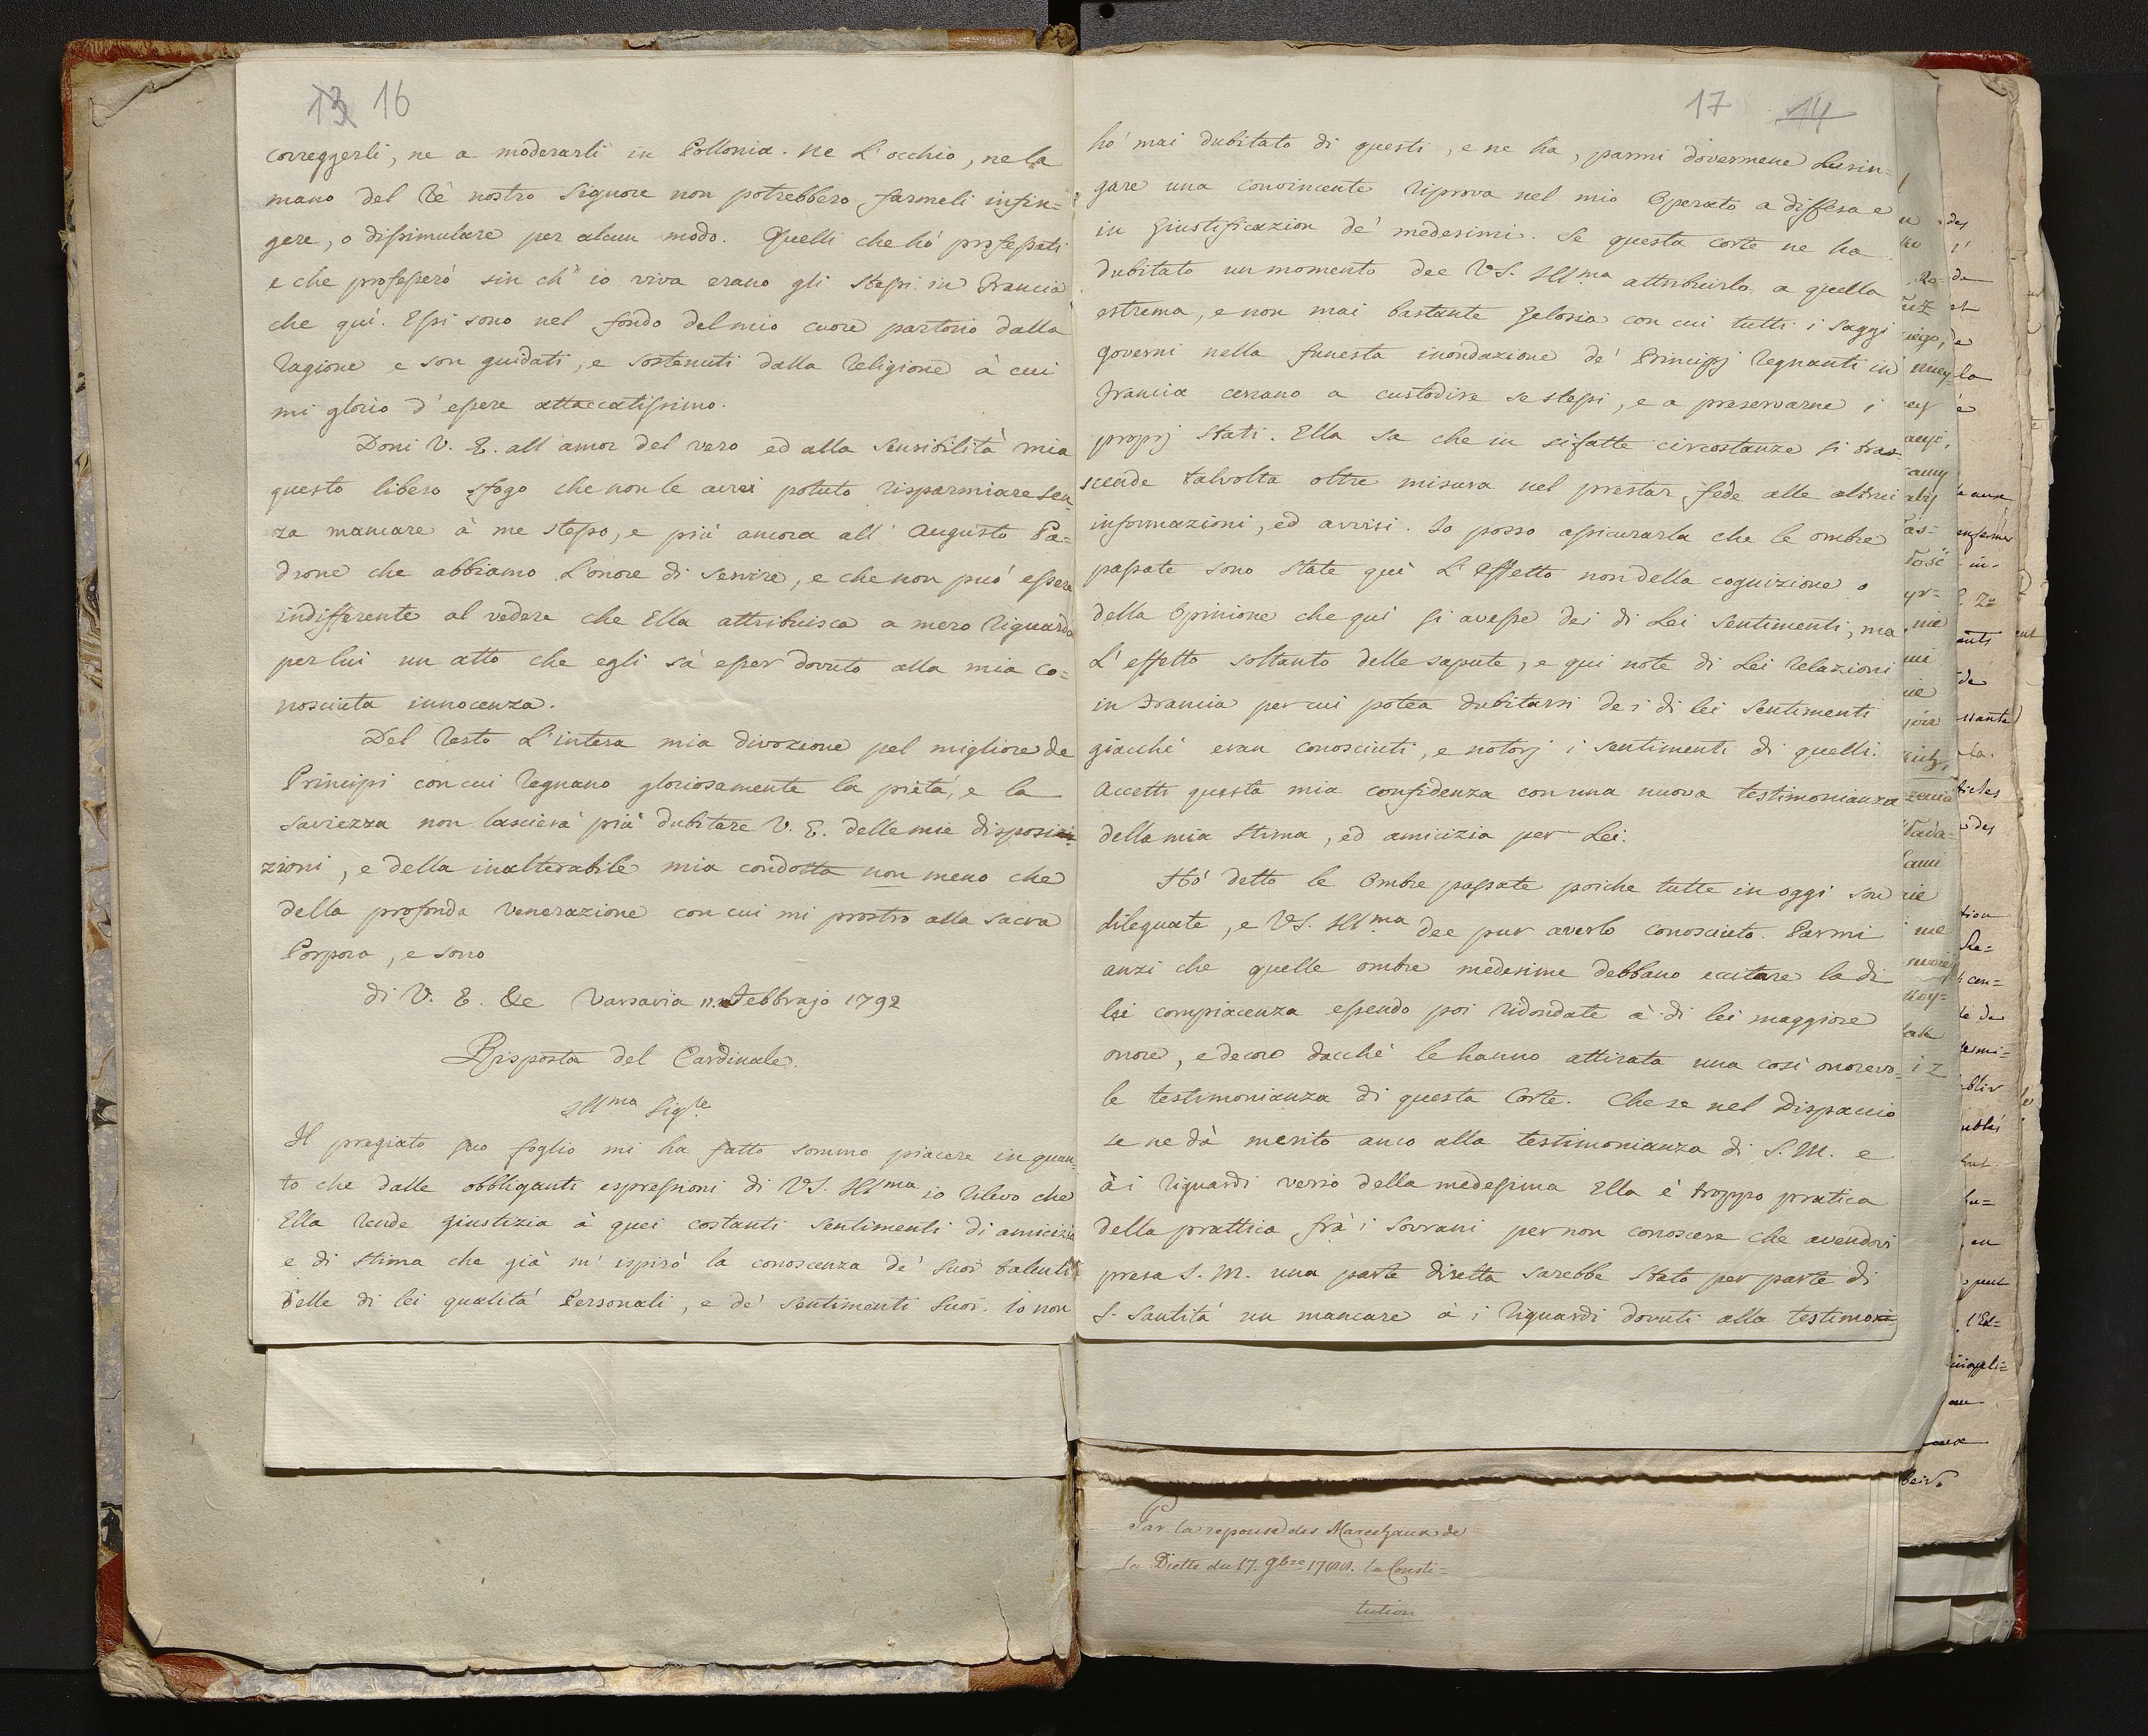 13 16
correggerli, ne a moderarli in Pollonia. Ne L'occhio, ne la
mano del Rè nostro Signore non potrebbero farmeli infin=
gere, o dissimulare per alcun modo. Quelli che hò professati
e che professerò sin ch'io viva erano gli stessi in Francia
che quì. Essi sono nel fondo del mio cuore partorio dalla
ragione e son guidati, e sostenuti dalla Religione à cui
mi glorio d'essere attaccatissimo.
Doni V. E. all'amor del vero ed alla sensibilità mia
questo libero sfogo che non le avrei potuto risparmiare sen=
za mancare à me stesso, e più ancora all'Augusto Pa=
drone che abbiamo L'onore di servire, e che non può essere
indifferente al vedere che Ella attribuisca a mero riguardo
per lui un atto che egli sà esser dovuto alla mia co=
nosciuta innocenza.
Del resto L'intera mia divozione pel migliore de
Principi con cui regnano gloriosamente la pietà, e la
saviezza non lascierà più dubitare V. E. delle mie disposi=
zioni, e della inalterabile mia condotta non meno che
della profonda venerazione con cui mi prostro alla Sacra
Porpora, e sono
di V. E. &c Varsavia 11. Febbrajo 1792
Risposta del Cardinale.
Illma Sigre
Il pregiato suo foglio mi ha fatto sommo piacere in quan=
to che dalle obbliganti espressioni di VS. Illma io rilevo che
Ella rende giustizia à quei costanti sentimenti di amicizia
e di stima che già m'ispirò la conoscenza de' suoi talenti
delle di lei qualità Personali, e de' sentimenti suoi. Io non
17 14
hò mai dubitato di questi, e ne ha, parmi dovermene Lusin=
gare una convincente riprova nel mio Operato a diffesa e
in giustificazion de' medesimi. Se questa corte ne ha
dubitato un momento dee VS. Illma attribuirlo a quella
estrema, e non mai bastante gelosia con cui tutti i saggi
governi nella funesta inondazione de' Principj regnanti in
Francia cercano a custodire se stessi, e a preservarne i
proprj Stati. Ella sa che in sifatte circostanze si tra=
scende talvolta oltre misura nel prestar fede alle altrui
informazioni, ed avvisi. Io posso assicurarla che le ombre
passate sono state quì L'effetto non della cognizione o
della Opinione che quì si avesse dei di Lei Sentimenti, ma
L'effetto soltanto delle sapute, e qui note di Lei relazioni
in Francia per cui potea dubitarsi dei di lei Sentimenti
giacchè eran conosciuti, e notorj i sentimenti di quelli.
Accetti questa mia confidenza con una nuova testimonianza
della mia stima, ed amicizia per Lei.
Hò detto le Ombre passate poiche tutte in oggi son
dileguate, e VS. Illma dee pur averlo conosciuto. Parmi
anzi che quelle ombre medesime debbano eccitare la di
lei compiacenza essendo poi ridondate à di lei maggiore
onore, e decoro dacchè le hanno attirata una così onorevo=
le testimonianza di questa Corte. Che se nel Dispaccio
se ne dà merito anco alla testimonianza di S. M. e
à i riguardi verso della medesima Ella è troppo pratica
della prattica frà i Sovrani per non conoscere che avendovi
presa S. M. una parte diretta sarebbe stato per parte di
S. Santità un mancare à i riguardi dovuti alla testimoni=
Par la reponse des Marechaux de
la Diette du 17. 9bre 1788. la Consti=
tution